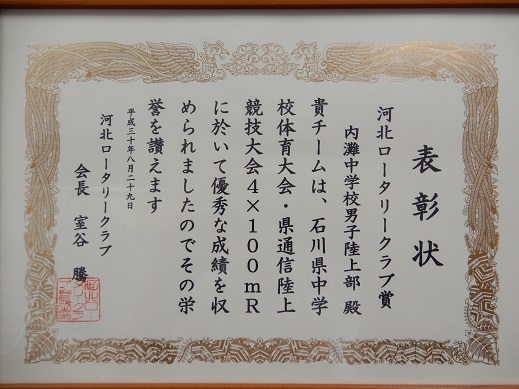 表彰状
河北ロータリークラブ賞
内灘中学校男子陸上部 殿
貴チームは、石川県中学
校体育大会・県通信陸上
競技大会4×100mR
に於いて優秀な成績を収
められましたのでその栄
誉を讃えます
平成三十年八月二十九日
河北ロータリークラブ
会長 室谷 勝